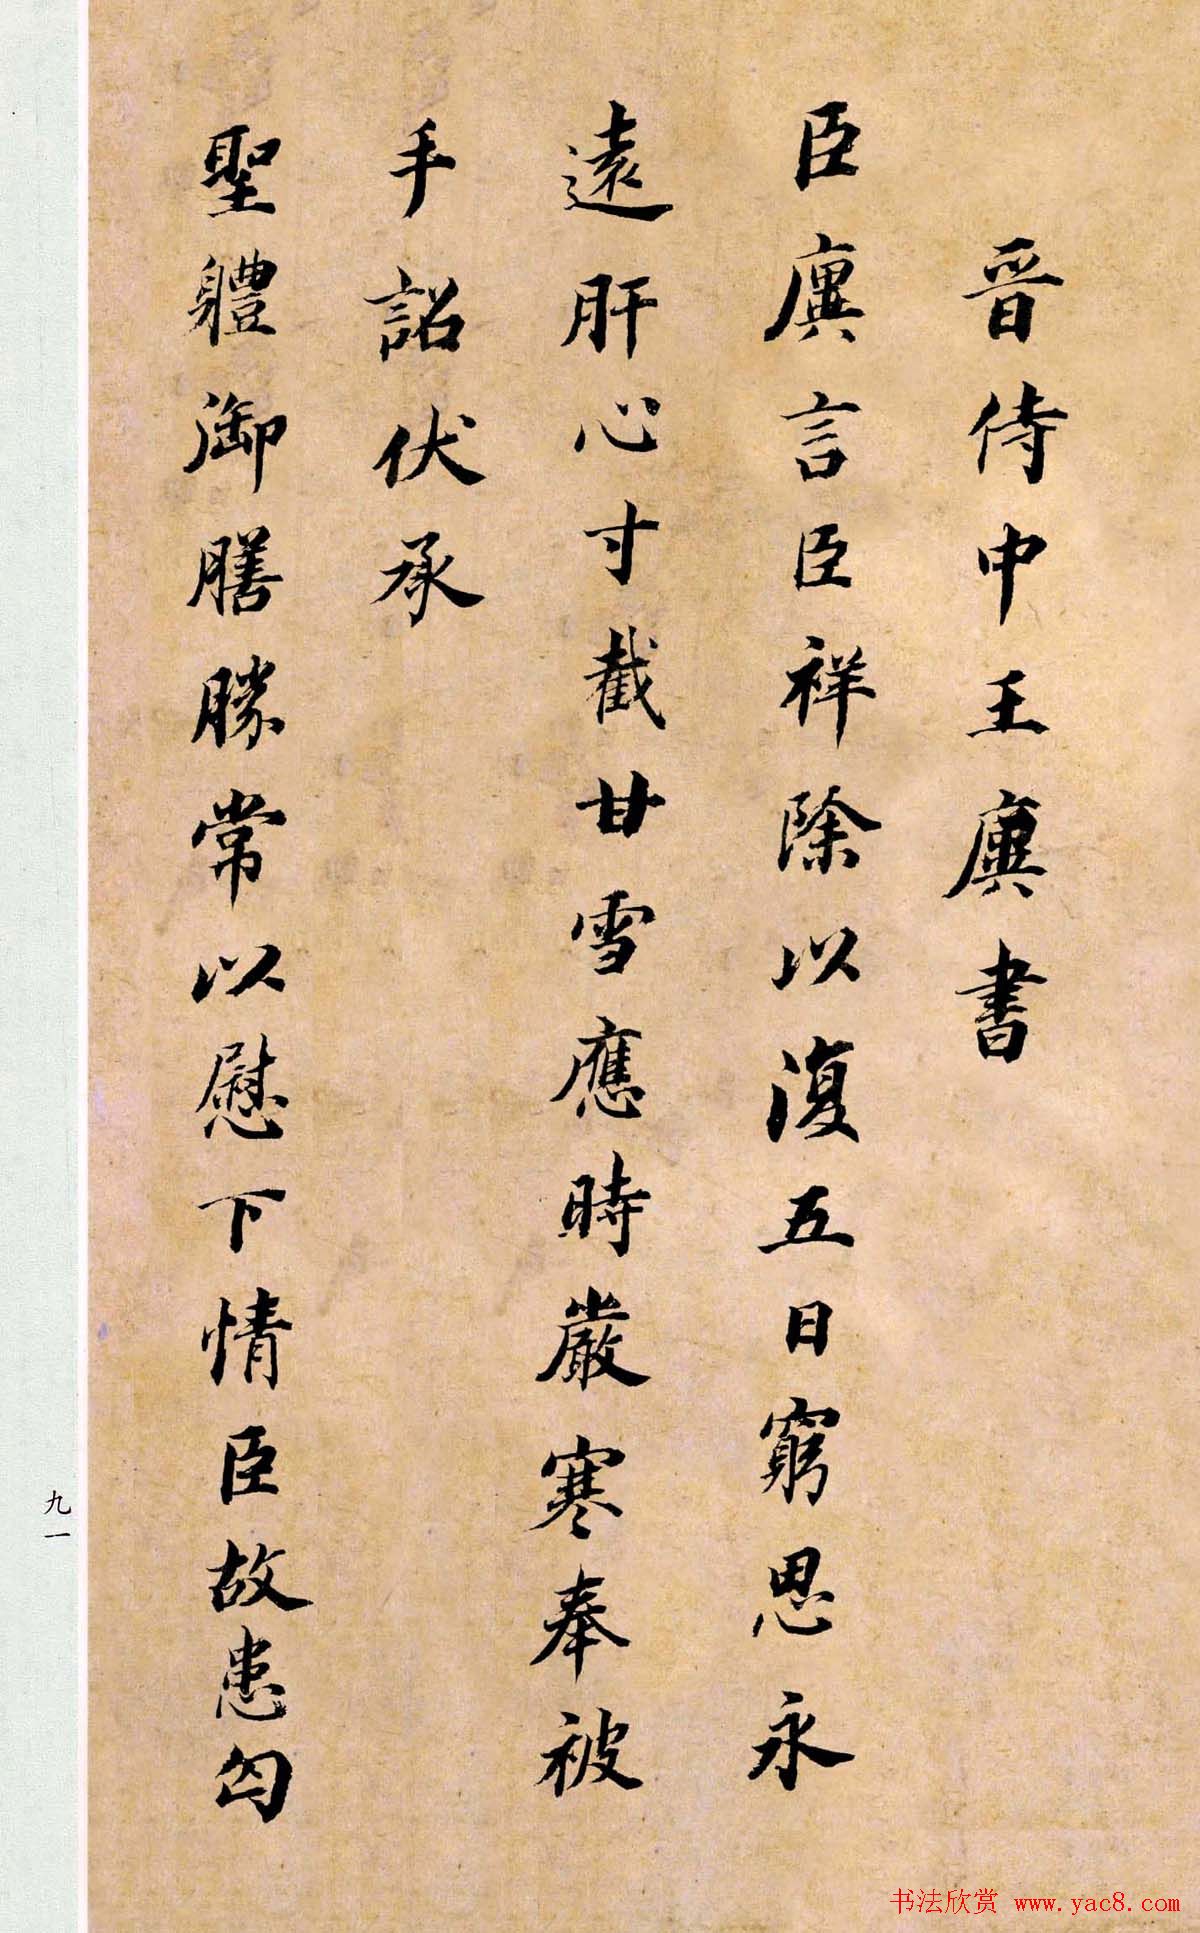 晉侍中王廙書
臣廙言臣祥除以復五日窮思永
遠肝心寸截甘雪應時嚴寒奉被
手詔伏承
聖體御膳勝常以慰下情臣故患匈
九一
书法欣赏 www.yac8.com